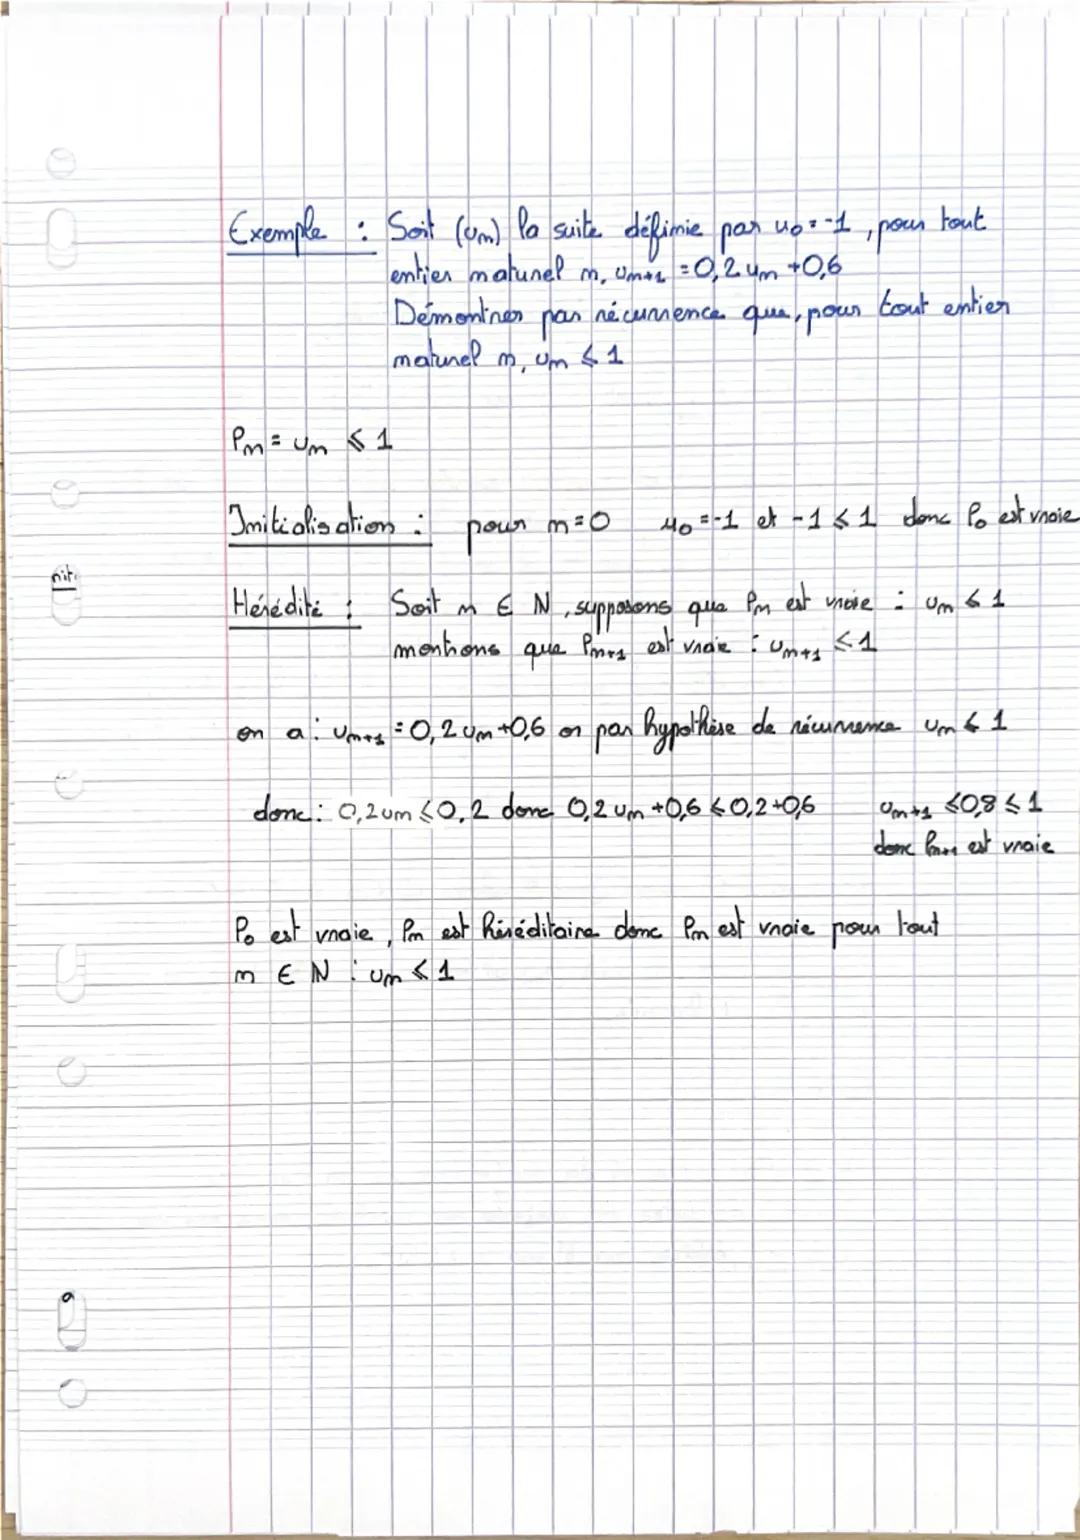 Exemple : Soit (un) la suite définie par u0 = -1, pour tout
entier naturel n, un+1 = 0,2 un + 0,6
Démontrer par récurrence que, pour tout entier
naturel n, un ≤ 1
Pn = un ≤ 1
Initialisation : pour n = 0 u0 = -1 et -1 ≤ 1 donc P0 est vraie
nit
Hérédité : Soit n ∈ N, supposons que Pn est vraie : un ≤ 1
montrons que Pn+1 est vraie : un+1 ≤ 1
on a : un+1 = 0,2 un + 0,6 or par hypothèse de récurrence un ≤ 1
donc : 0,2 un ≤ 0,2 donc 0,2 un + 0,6 ≤ 0,2 + 0,6 un+1 ≤ 0,8 ≤ 1
donc Pn+1 est vraie
P0 est vraie, Pn est héréditaire donc Pn est vraie pour tout
n ∈ N : un ≤ 1